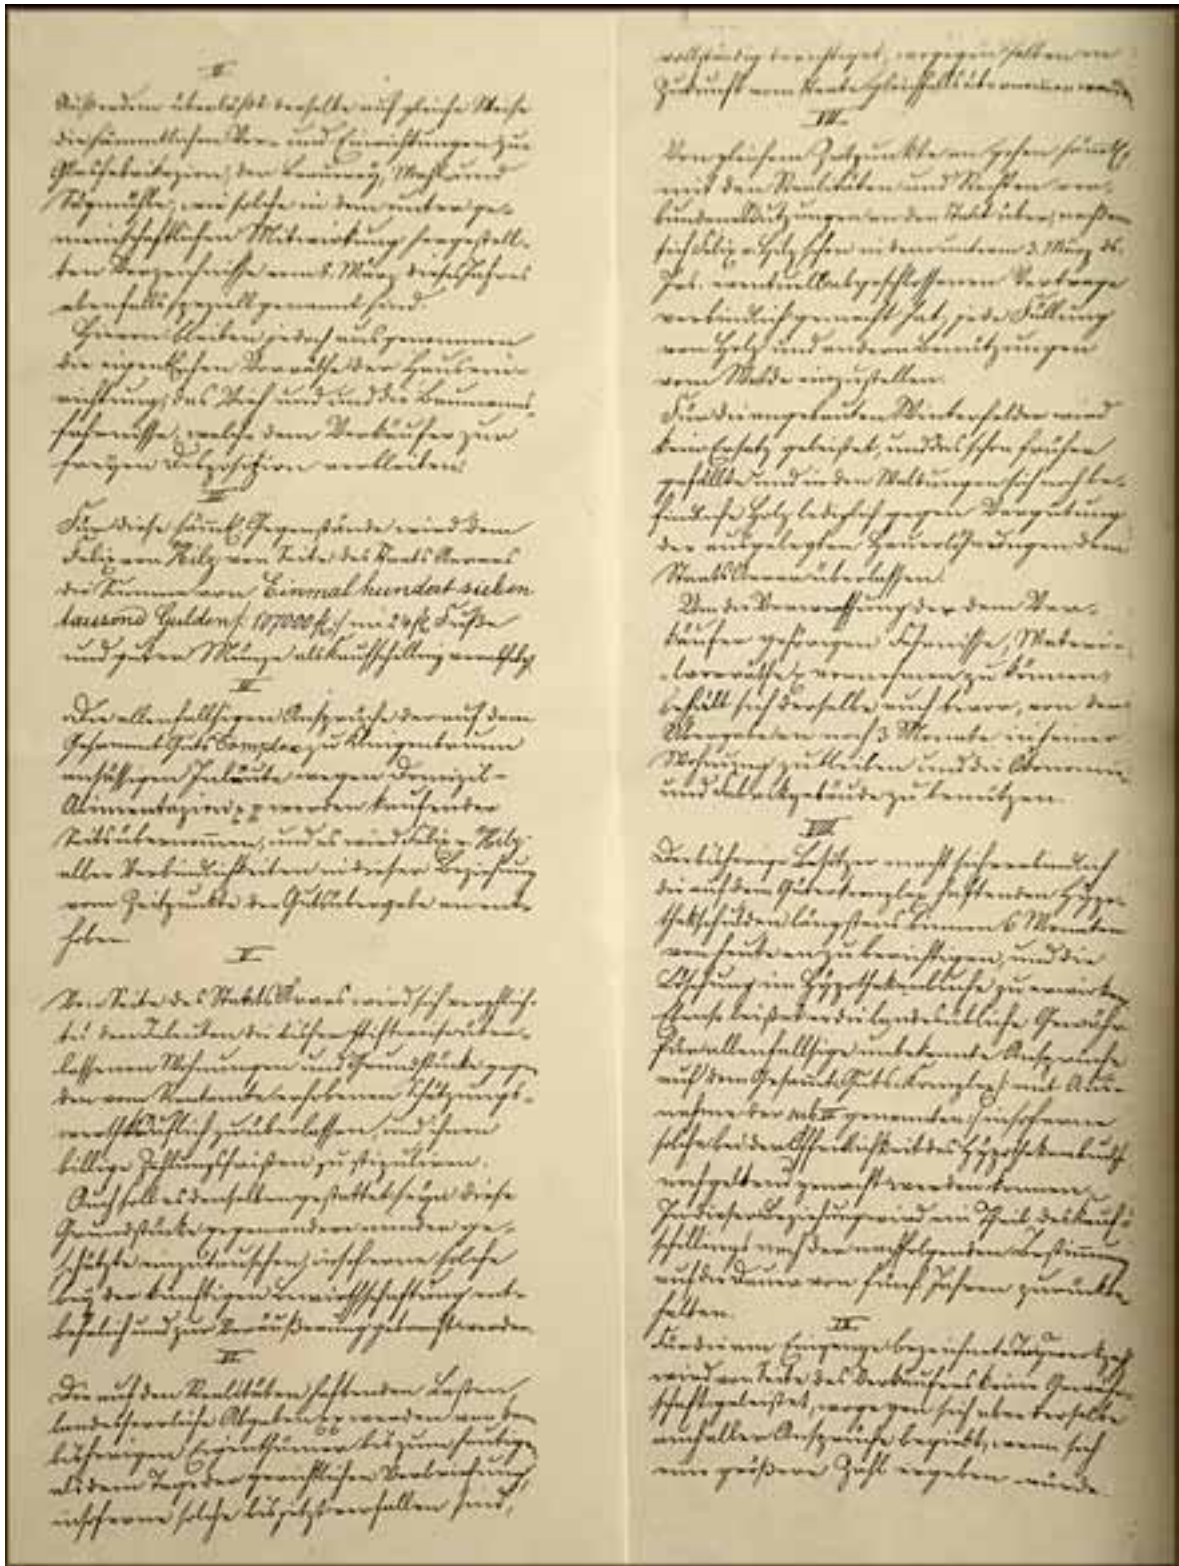 II
Außerdem überläßt derselbe auf gleiche Weise
die sämmtlichen Vor- und Einrichtungen zur
Glasfabrikazion, der Brauerey, Mahl- und
Sägmühle, wie solche in dem unter ge-
meinschaftlichen Mitwirkung hergestell-
ten Verzeichnisse vom 8. März dieses Jahres
ebenfalls speziell genannt sind.
Hievon bleiben jedoch ausgenommen
die eigentlichen Vorräthe der Hausein-
richtung, das Vieh und und die Baumanns-
fahrnisse, welche dem Verkäufer zur
freyen Disposizion verbleiben.
III
Für diese sämtl. Gegenstände wird dem
Felix von Hilz von Seite des Staats Aerars
die Summe von Einmal hundert sieben
tausend Gulden /: 107000 fl :/ im 24 fl Fuße
und guter Münze als Kaufschilling
IV
Die allenfallsigen Ansprüche der auf dem
Gesammt Guts Complex zu Klingenbrunn
ansässigen Inleute wegen Domizil-
Alimentazion p p werden kaufender
Seits übernommen, und es wird Felix v. Hilz
aller Verbindlichkeiten in dieser Beziehung
vom Zeitpunkte der Gutsübergabe an ent-
hoben.
V
Von Seite des Staats Aerars wird sich verpflich-
tet den Inleuten die bisher stiftweise über-
lassenen Wohnungen und Grundstücke gegen
den vom Rentamte erhobenen Schätzungs-
werth käuflich zu überlassen, und ihnen
billige Zahlungsfristen zu stipuliren.
Auch soll es denselben gestattet seyn diese
Grundstücke gegen andere minder ge-
schätzte einzutauschen, insoferne solche
bey der künftigen Bewirthschaftung ent-
behrlich und zur Veräußerung gebracht werden.
VI
Die auf den Realitäten haftenden Lasten,
landesherrliche Abgaben pp werden von dem
bisherigen Eigenthümer bis zum heutigen
als dem Tage der gerichtlichen Verbriefung,
insoferne solche bis jetzt verfallen sind,
vollständig berichtiget, wogegen selbe in
Zukunft vom Aerar gleichfalls übernommen werden
VII
Von gleichem Zeitpunkte an gehen sämtl.
mit den Realitäten und Rechten ver-
bundene Nutzungen an den Staat über,
sich Felix v. Hilz schon in dem unterm 3. März ds.
Jhs. eventuell abgeschlossenen Vertrage
verbindlich gemacht hat, jede Fällung
von Holz und andere Benützungen
vom Walde einzustellen.
Für die angebauten Winterfelder wird
kein Ersatz geleistet, und das schon früher
gefällte und in den Waldungen sich noch be-
findliche Holz lediglich gegen Vergütung
der ausgelegten Hauerlöhnungen dem
Staats Aerar überlassen.
Um die Verwerthung der dem Ver-
käufer gehörigen Fahrnisse, Materi-
alvorräthe p vornehmen zu können,
behält sich derselbe auch bevor, von der
Übergabe an noch 3 Monate in seiner
Wohnung zu bleiben und die Ökonomie-
und Fabrikgebäude zu benützen.
VIII
Der bisherige Besitzer macht sich verbindlich
die auf dem Güterkomplex haftenden Hypo-
thekschulden längstens binnen 6 Monaten
von heute an zu berichtigen, und die
Löschung im Hypothekenbuche zu erwirken,
Ebenso leistet er die landesübliche Gewähr
für allenfallsige unbekannte Ansprüche
auf dem Gesammt Guts-Komplex /: mit Aus-
nahme der sub IV genannten :/ insoferne
solche bei der Öffentlichkeit des Hypothekenbuchs
noch geltend gemacht werden können.
In dieser Beziehung wird ein Theil des Kauf-
schillings nach der nachfolgenden Bestimmung
auf die Dauer von fünf Jahren zurückbe-
halten.
IX
Für die am Eingange bezeichnete Tagwerkzahl
wird von Seite des Verkäufers keine Gewähr-
schaft geleistet, wogegen sich aber derselbe
auch aller Ansprüche begiebt, wenn sich
eine größere Zahl ergeben würde.